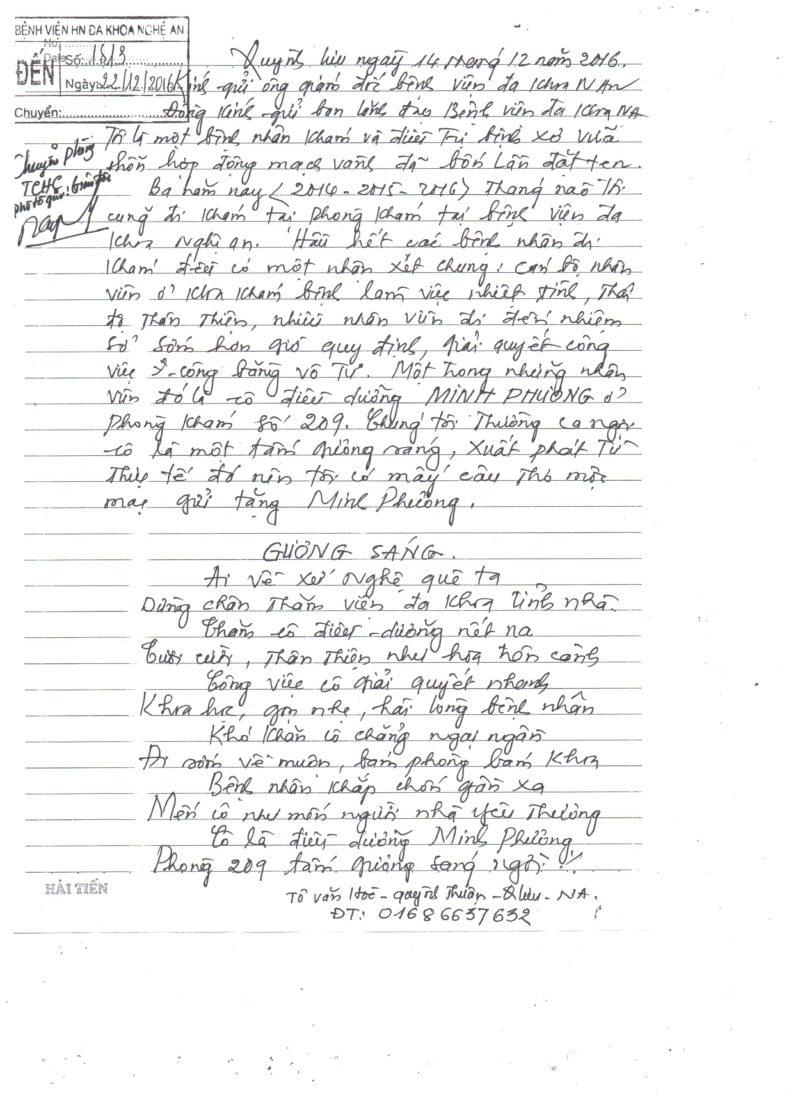 BỆNH VIỆN HN ĐA KHOA NGHỆ AN
No
Date
ĐẾN
Số: 1513
Ngày: 22/12/2016
Chuyển:
Chuyển phòng
TCHC
photo gửi
nay
Quỳnh lưu ngày 14 tháng 12 năm 2016.
Kính gửi ông giám đốc bệnh viện đa khoa NAn
Đồng kính gửi ban lãnh đạo Bệnh viện đa khoa NA
Tôi là một bệnh nhân khám và điều trị bệnh xơ vữa
hỗn hợp động mạch vành đã bốn lần đặt ten.
Ba năm nay (2014-2015-2016) tháng nào tôi
cũng đi khám tại phòng khám tại bệnh viện đa
khoa nghệ an. Hầu hết các bệnh nhân đi
khám đều có một nhận xét chung: cán bộ nhân
viên ở khoa khám bệnh làm việc nhiệt tình, thái
độ thân thiện, nhiều nhân viên đi đến nhiệm
sở sớm hơn giờ quy định, giải quyết công
việc công bằng vô tư. Một trong những nhân
viên đó là cô điều dưỡng MINH PHƯƠNG ở
phòng khám số 209. Chúng tôi thường ca ngợi
cô là một tấm gương sáng, xuất phát từ
thực tế đó nên tôi có mấy câu thơ mộc
mạc gửi tặng Minh Phương.
GƯƠNG SÁNG.
Ai về xứ nghệ quê ta
Dừng chân thăm viện đa khoa tỉnh nhà.
Thăm cô điều dưỡng nết na
Tươi cười, thân thiện như hoa trên cành
Công việc cô giải quyết nhanh
Khoa học, gọn nhẹ, hài lòng bệnh nhân
Khó khăn cô chẳng ngại ngần
Đi sớm về muộn, bám phòng bám khoa
Bệnh nhân khắp chốn gần xa
Mến cô như mến người nhà yêu thương
Cô là điều dưỡng Minh Phương
Phòng 209 tấm gương sáng ngời!!!
HẢI TIẾN
Tô văn Hoè - quỳnh thuận - Qlưu - NA.
ĐT: 01686637632